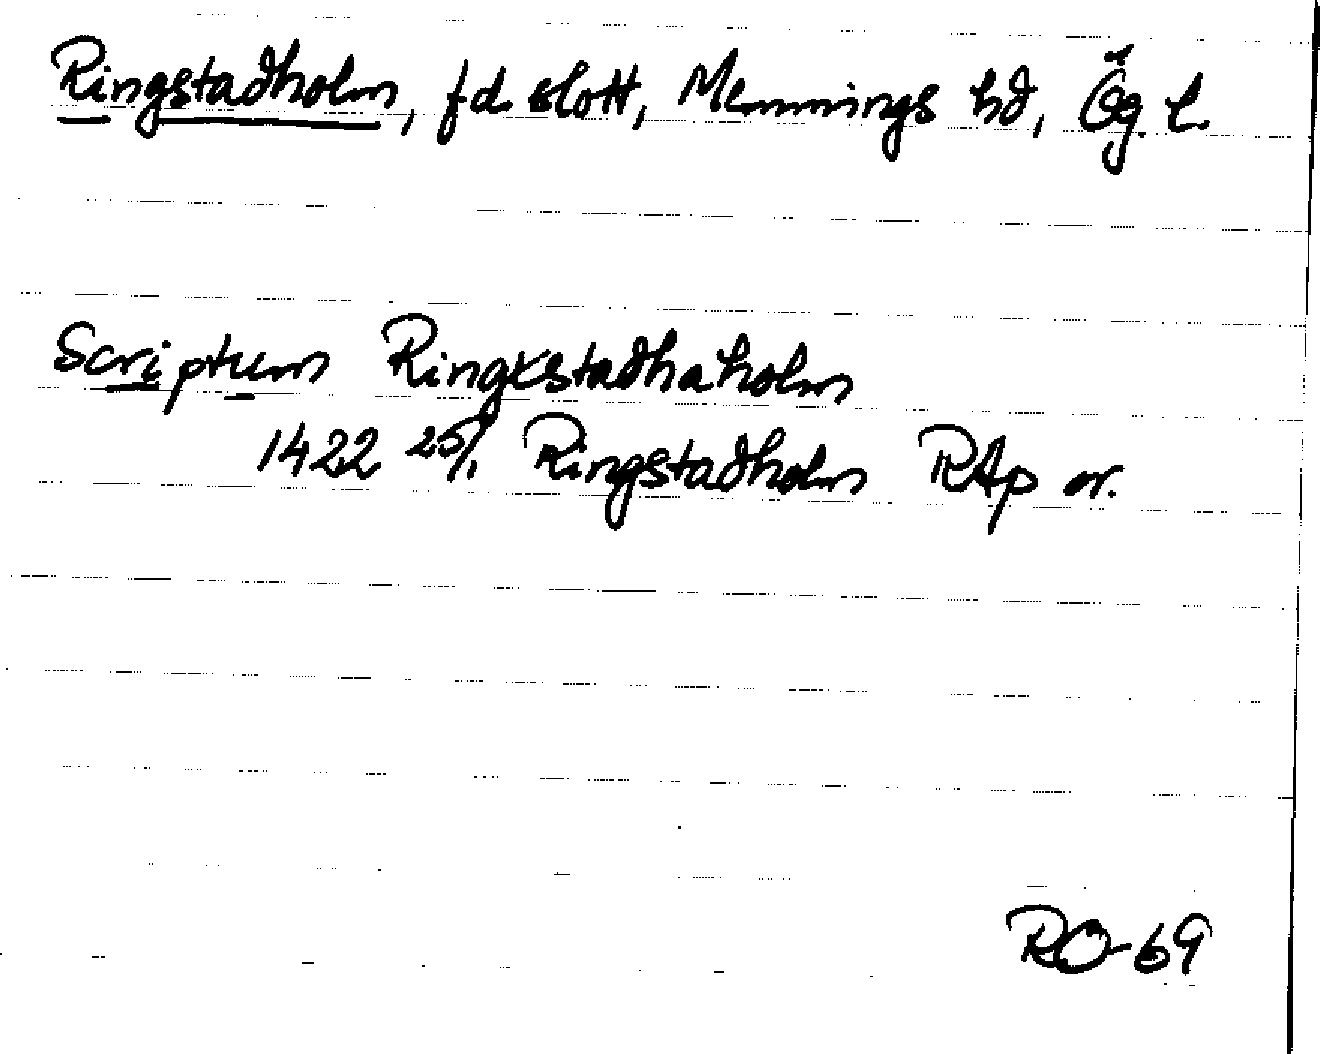 Ringstadholm, fd slott, Memmings hd, Ög. l.
Scriptum Ringxstadhaholm
1422 25/1 Ringstadholm RAp or.
RO-69